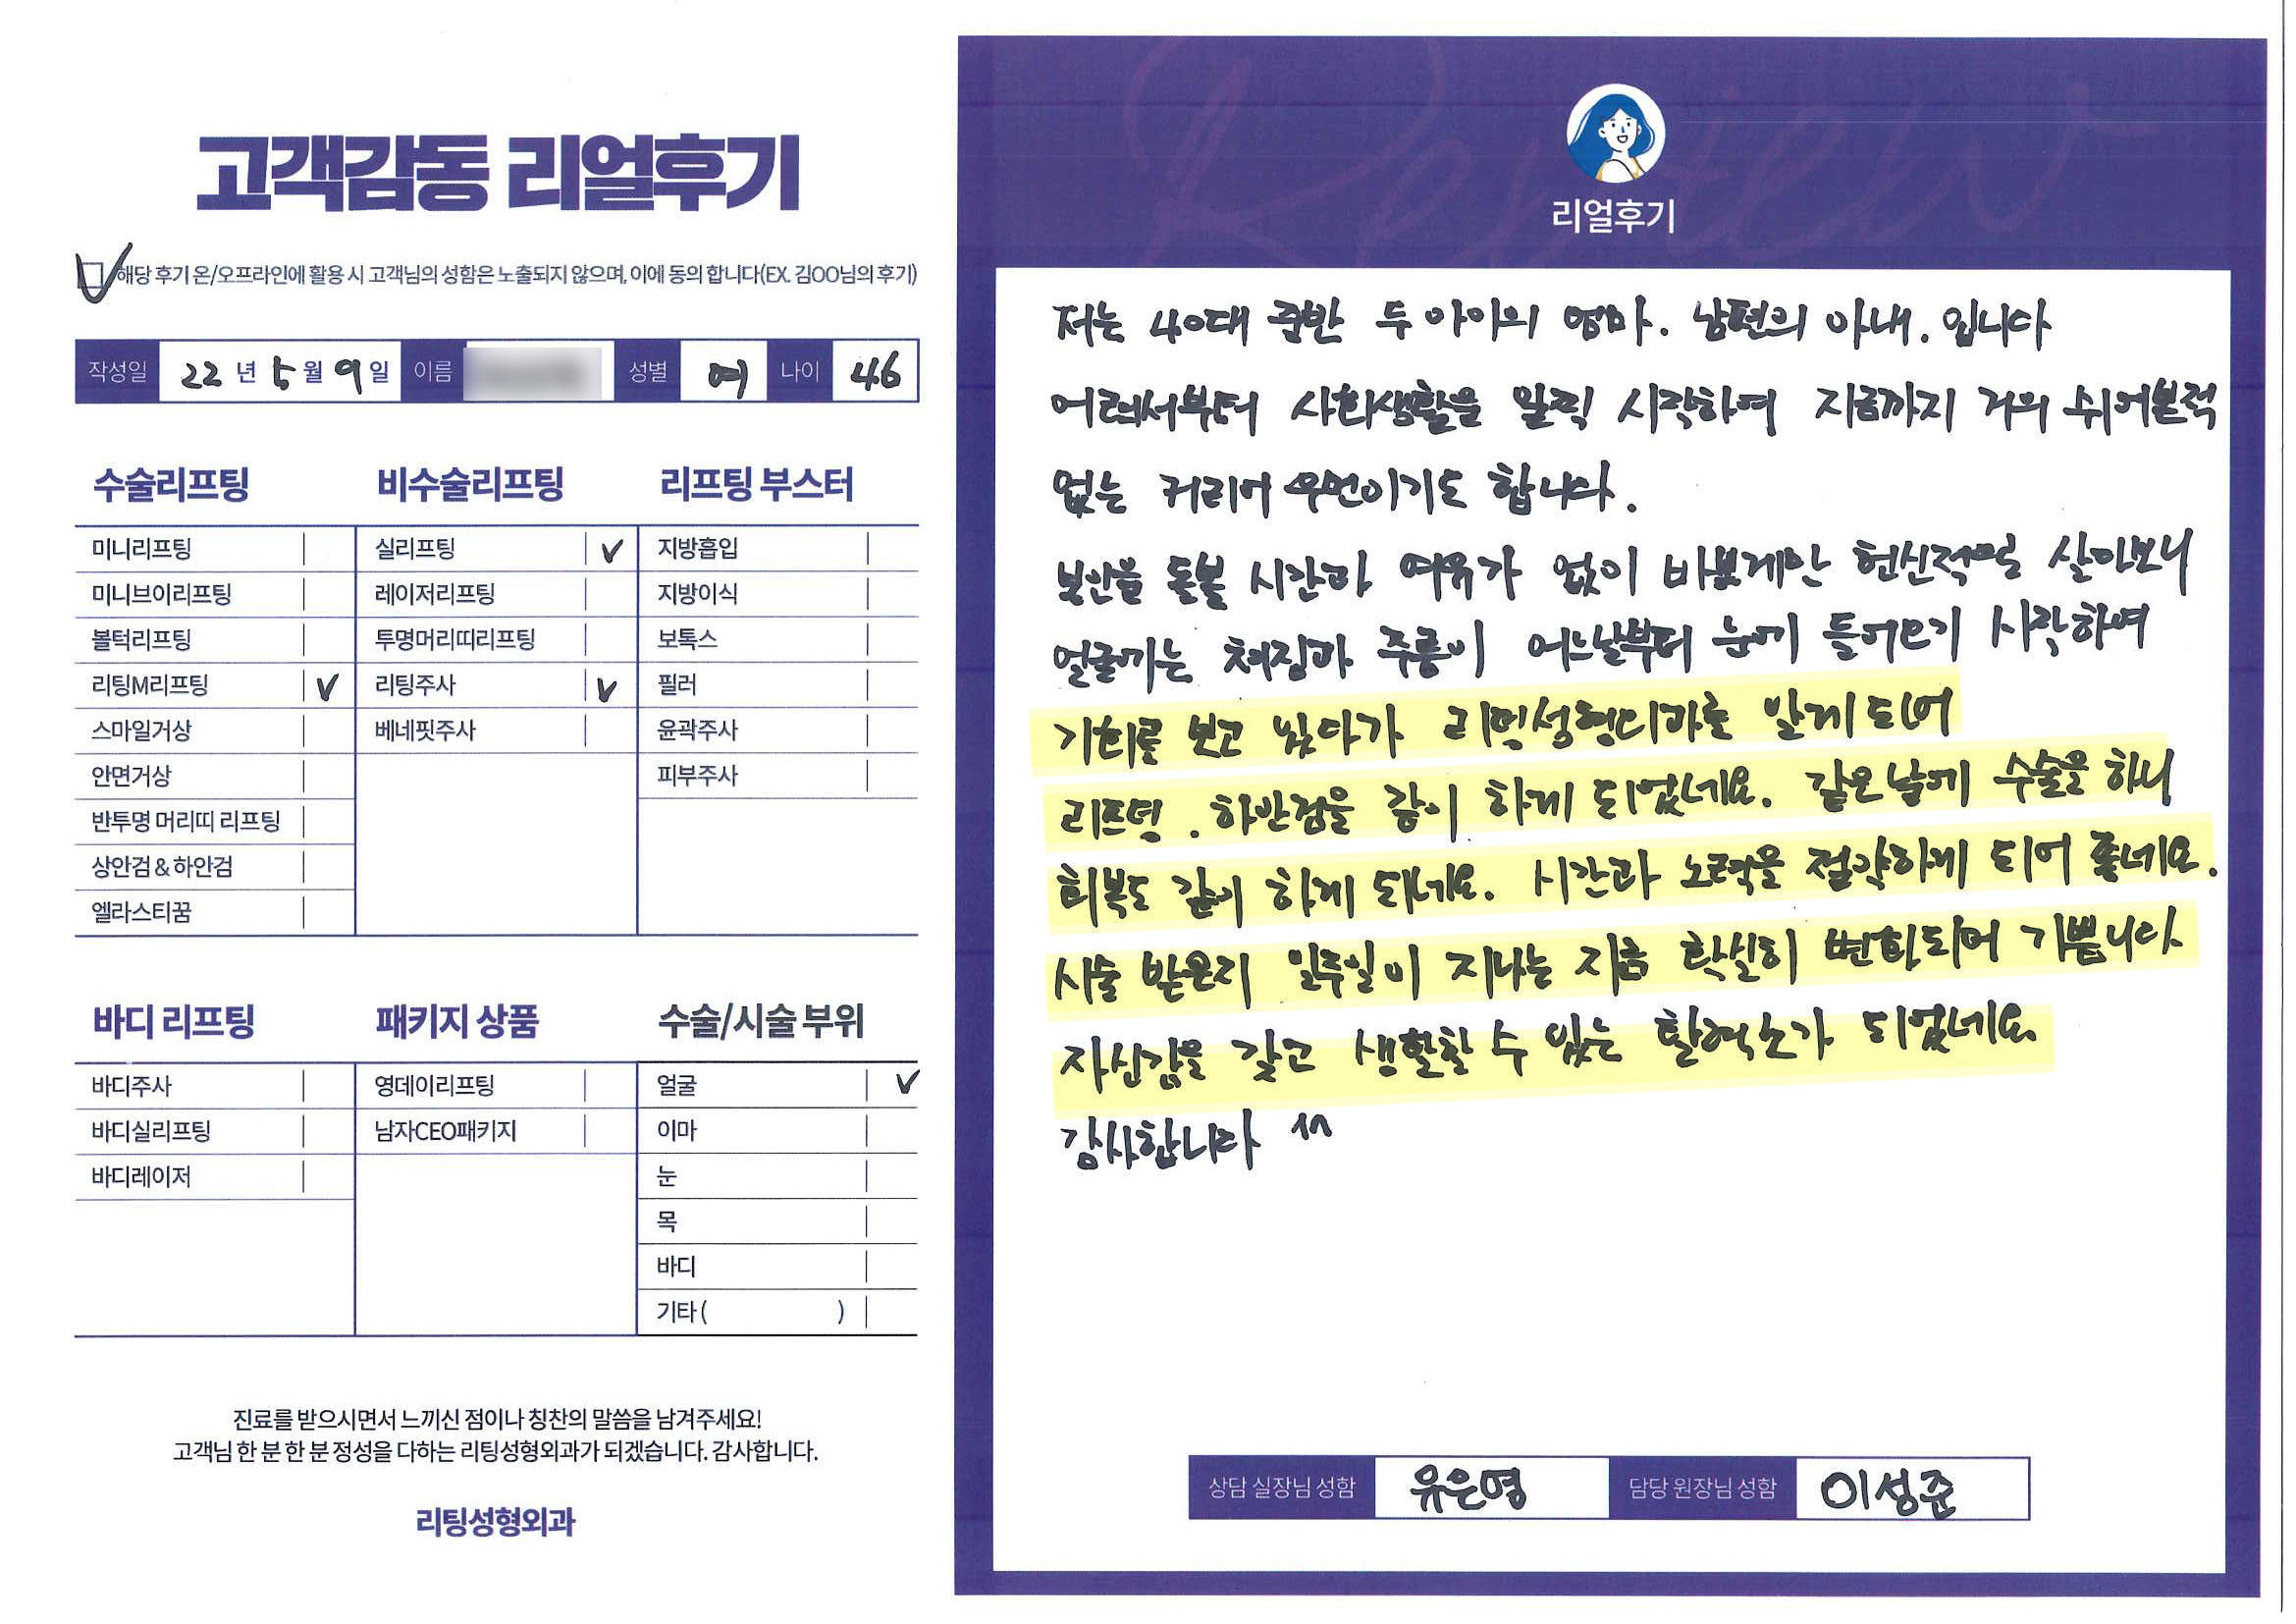 고객감동 리얼후기
해당 후기 온/오프라인에 활용 시 고객님의 성함은 노출되지 않으며, 이에 동의 합니다(EX. 김OO님의 후기)
작성일 22 년 5 월 9 일 이름 성별 여 나이 46
수술리프팅
미니리프팅
미니브이리프팅
볼턱리프팅
리팅M리프팅 ✓
스마일거상
안면거상
반투명 머리띠 리프팅
상안검 & 하안검
엘라스티꿈
비수술리프팅
실리프팅 ✓
레이저리프팅
투명머리띠리프팅
리팅주사 ✓
베네핏주사
리프팅 부스터
지방흡입
지방이식
보톡스
필러
윤곽주사
피부주사
바디 리프팅
바디주사
바디실리프팅
바디레이저
패키지 상품
영데이리프팅
남자CEO패키지
수술/시술 부위
얼굴 ✓
이마
눈
목
바디
기타 ( )
진료를 받으시면서 느끼신 점이나 칭찬의 말씀을 남겨주세요!
고객님 한 분 한 분 정성을 다하는 리팅성형외과가 되겠습니다. 감사합니다.
리팅성형외과
Review
리얼후기
저는 40대 중반 두 아이의 엄마. 남편의 아내. 입니다
어려서부터 사회생활을 일찍 시작하여 지금까지 거의 쉬어본적
없는 커리어 우먼이기도 합니다.
본인을 돌볼 시간과 여유가 없이 바쁘게만 헌신적으로 살아보니
얼굴에는 처짐과 주름이 어느날부터 눈에 들어오기 시작하여
기회를 보고 있다가 리팅성형외과를 알게 되어
리프팅. 하안검을 같이 하게 되었네요. 같은 날에 수술을 하니
회복도 같이 하게 되네요. 시간과 노력을 절약하게 되어 좋네요.
시술 받은지 일주일이 지나는 지금 확실히 변화되어 기쁩니다
자신감을 갖고 생활할 수 있는 활력소가 되었네요
감사합니다 ^^
상담 실장님 성함 유은영 담당 원장님 성함 이성준